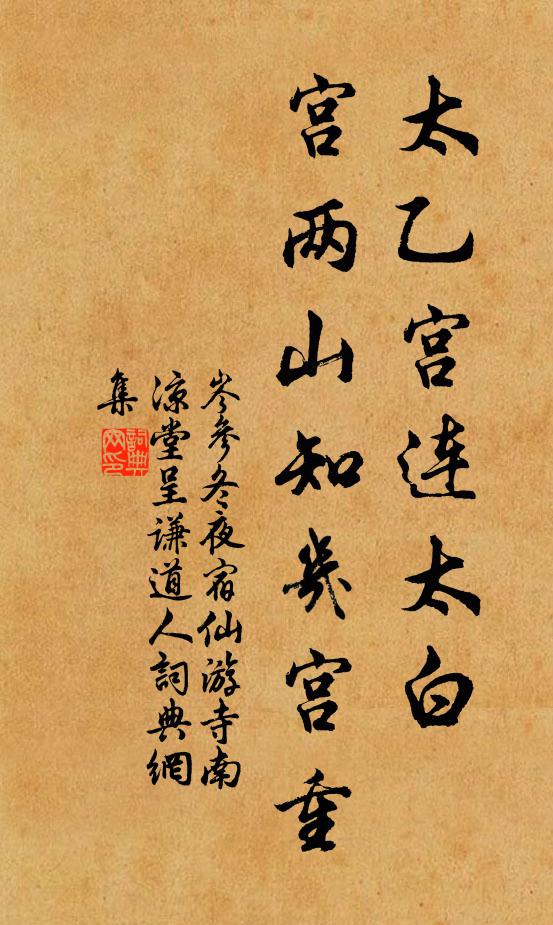 太乙宫连太白
宫两山知幾宫重
岑參冬夜宿仙游寺南
凉堂呈谦道人詞典網
集
詞典
网印